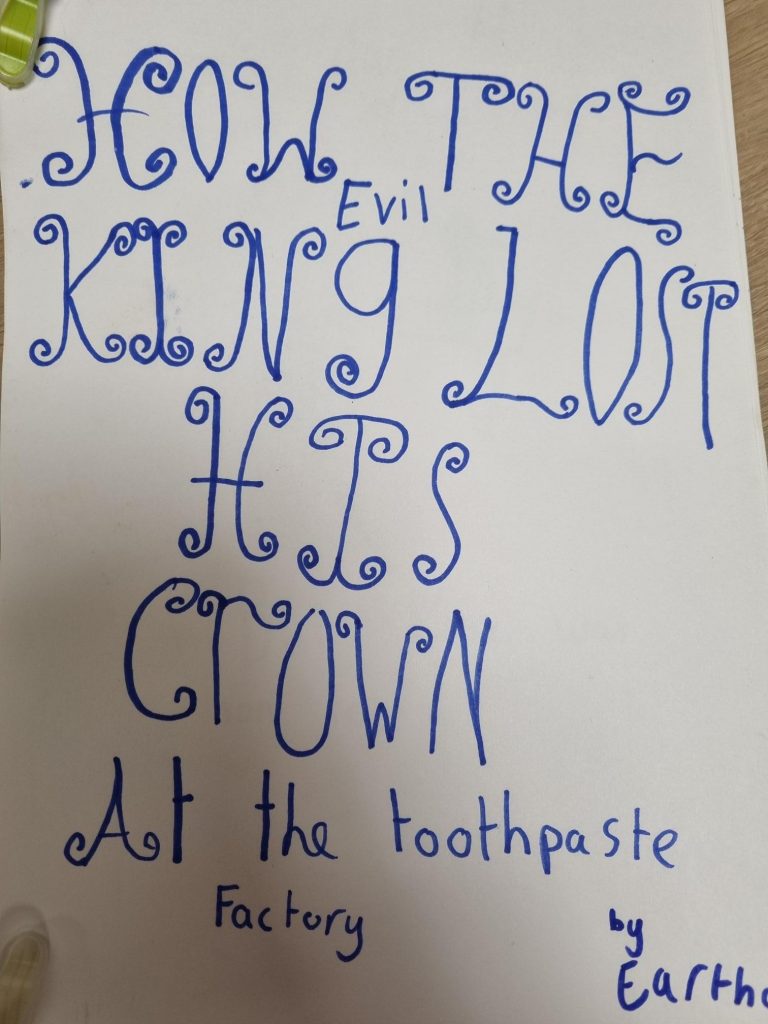 HOW THE
Evil
KINg LOST
HIS
CrOWN
At the toothpaste
Factory
by